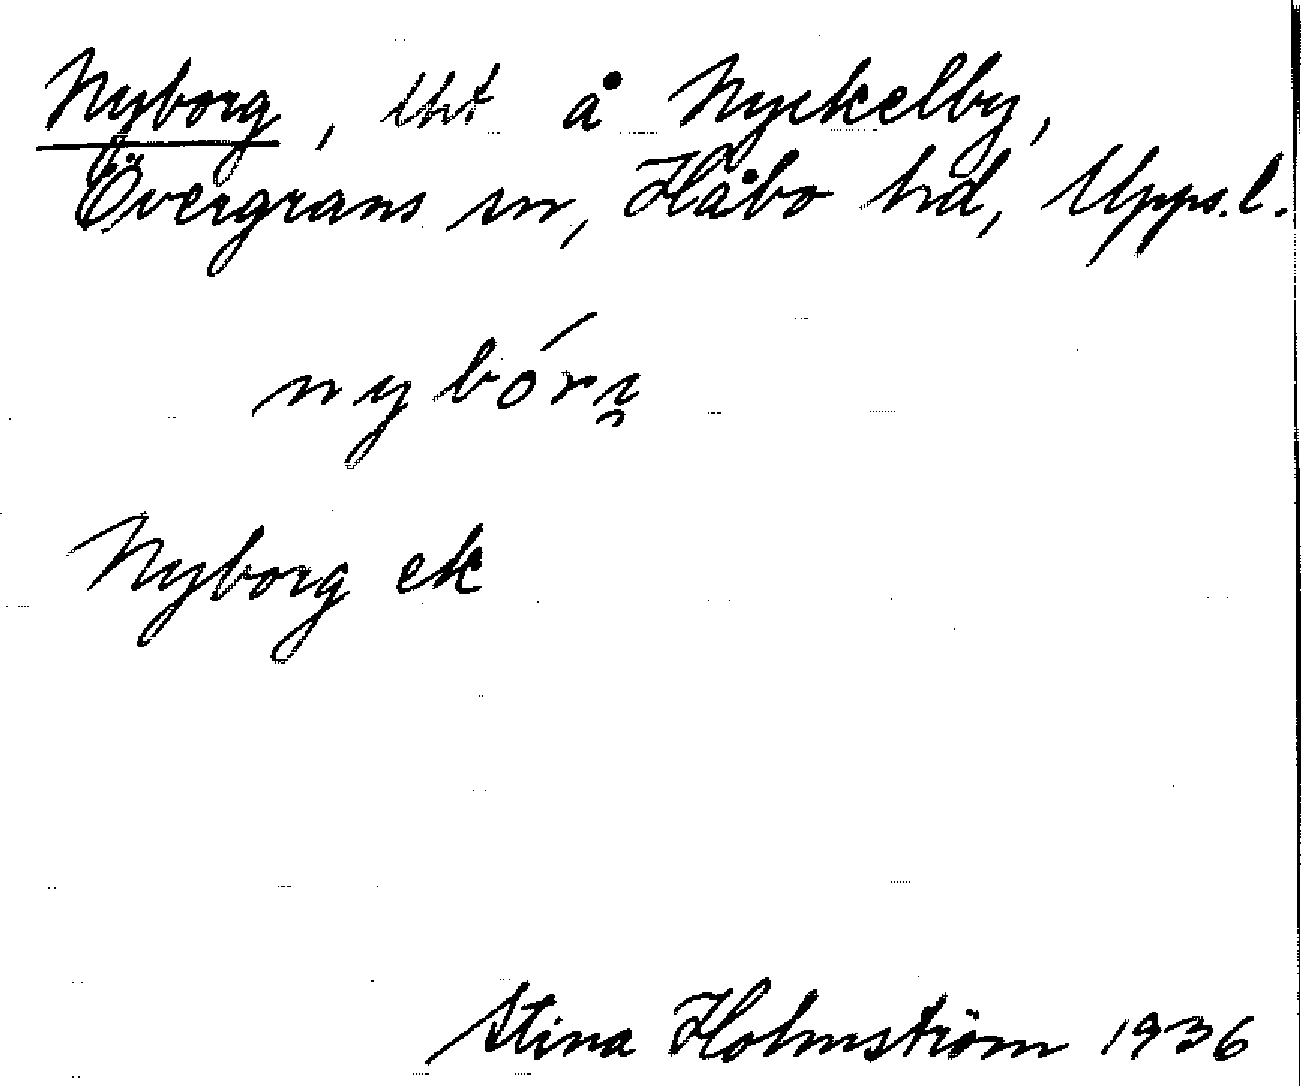 Nyborg, lht å Nyckelby,
Övergrans sn, Håbo hd, Upps. l.
nybór
Nyborg ek
Stina Holmström 1936